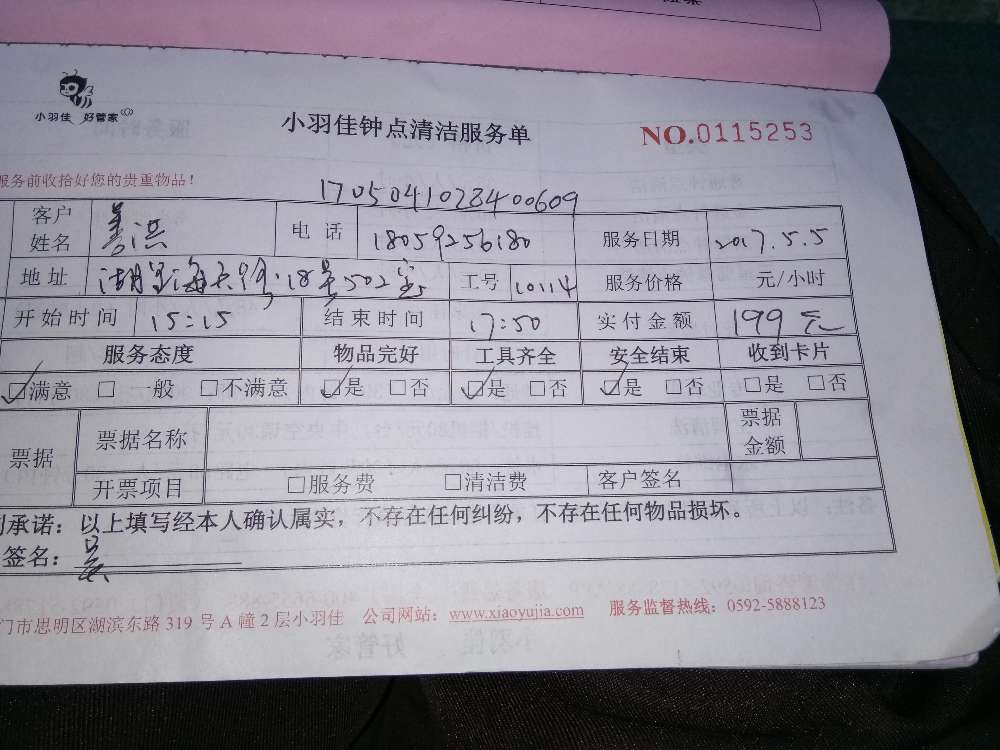 小羽佳 好管家
小羽佳钟点清洁服务单
NO.0115253
服务前收拾好您的贵重物品！
1705041028400609
客户姓名 电话 18059256180 服务日期 2017.5.5
地址 18号502室 工号 10114 服务价格 元/小时
开始时间 15:15 结束时间 17:50 实付金额 199元
服务态度 物品完好 工具齐全 安全结束 收到卡片
☑满意 □一般 □不满意 ☑是 □否 ☑是 □否 ☑是 □否 □是 □否
票据 票据名称 票据金额
开票项目 □服务费 □清洁费 客户签名
承诺：以上填写经本人确认属实，不存在任何纠纷，不存在任何物品损坏。
签名：
门市思明区湖滨东路 319 号 A 幢 2 层小羽佳 公司网站：www.xiaoyujia.com 服务监督热线：0592-5888123